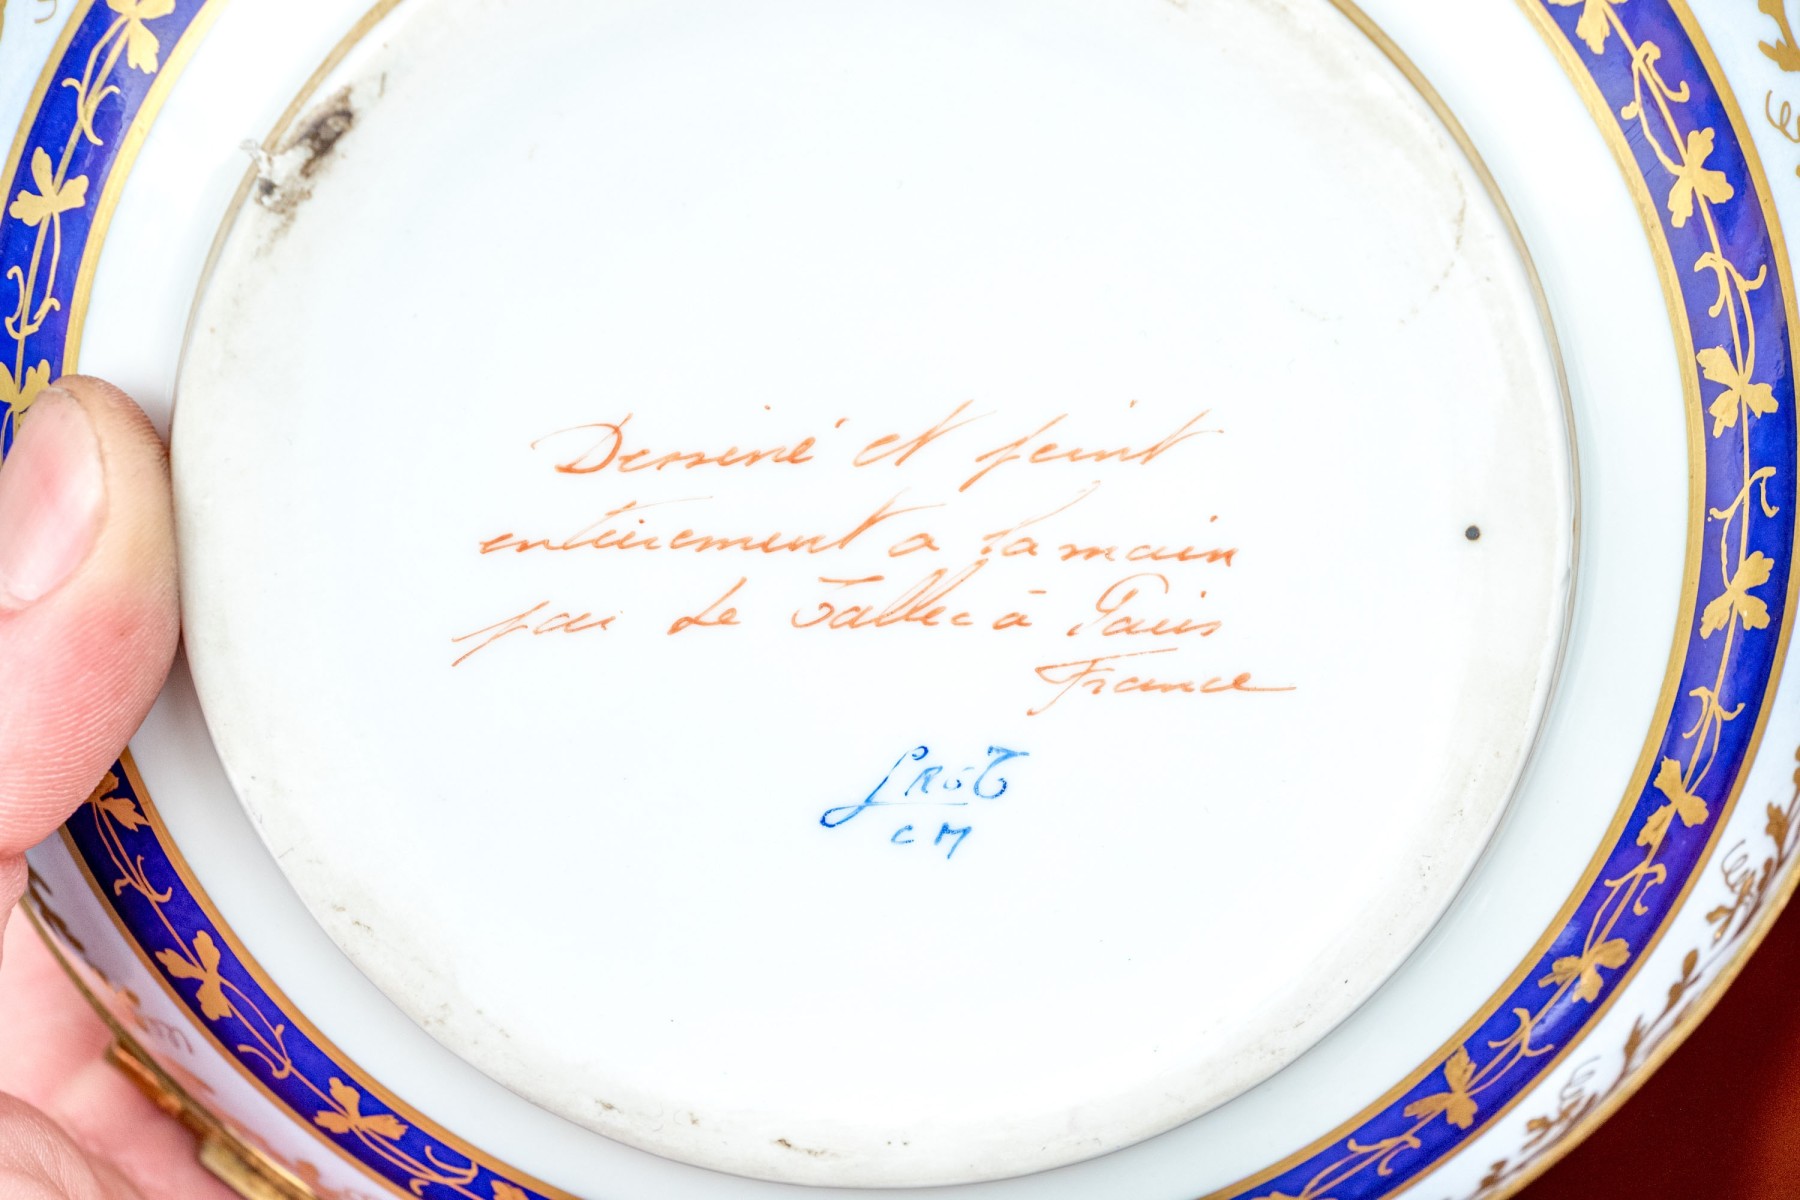 Dessiné et peint
entièrement a la main
par Le Tallec à Paris
France
CM